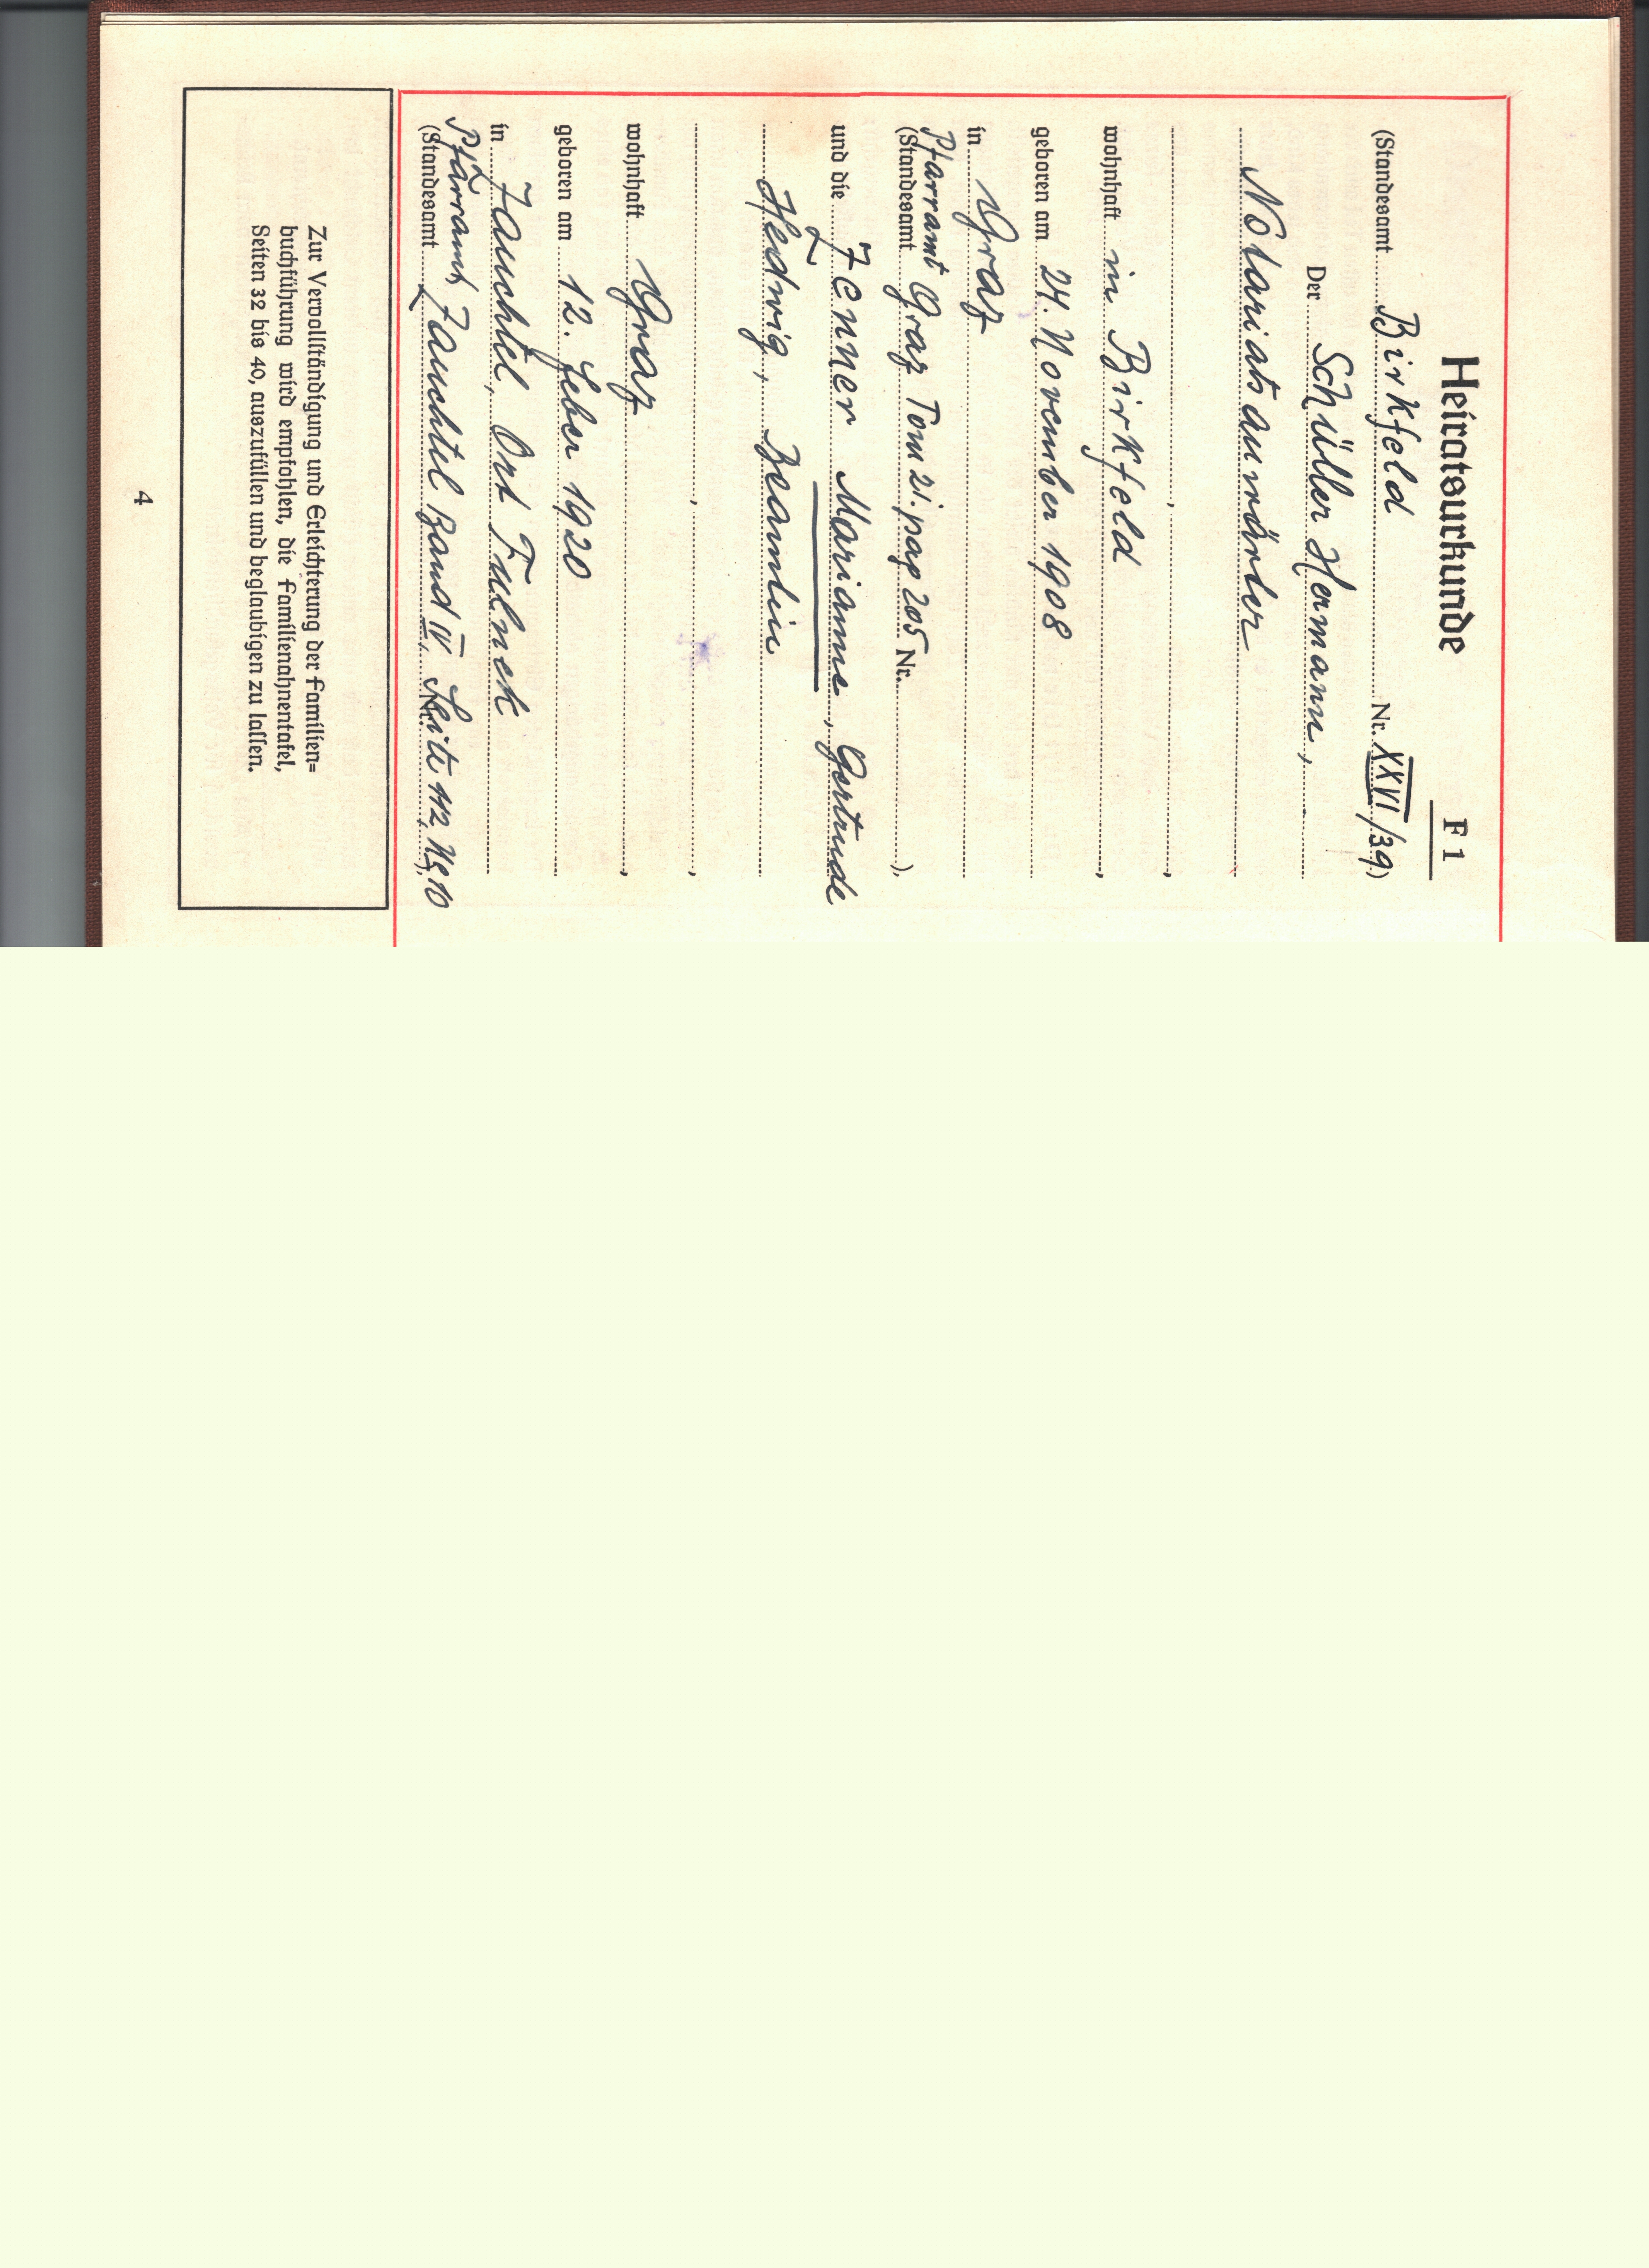 Heiratsurkunde
F 1
(Standesamt Birkfeld Nr. XXVI/39)
Der Schüller Hermann,
Notariatsanwärter
,
wohnhaft in Birkfeld,
geboren am 24. November 1908
in Graz
Pfarramt
(Standesamt Graz Tom 21. pag 205 Nr. ),
und die Zenner Marianne, Gertrude
Hedwig, Beamtin
, ,
wohnhaft Graz,
geboren am 12. Feber 1920
in Zauchtel, Ort Fulnek
Pfarramt
(Standesamt Zauchtel Band IV, Seite 112, Nr. 10),
Zur Vervollständigung und Erleichterung der Familien=
buchführung wird empfohlen, die Familienahnentafel,
Seiten 32 bis 40, auszufüllen und beglaubigen zu lassen.
4